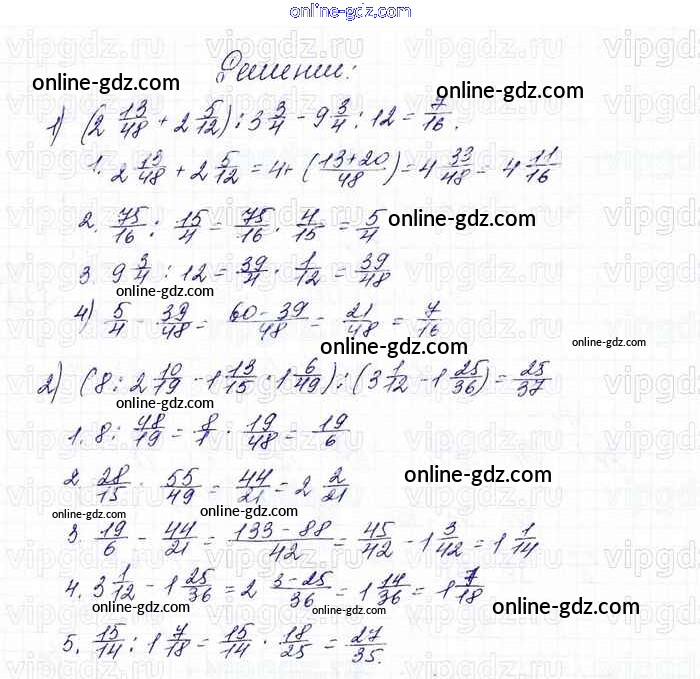 online-gdz.com
Решение:
online-gdz.com online-gdz.com
1) (2 13/48 + 2 5/12) : 3 3/4 - 9 3/4 : 12 = 7/16.
1. 2 13/48 + 2 5/12 = 4 + (13+20/48) = 4 33/48 = 4 11/16
2. 75/16 : 15/4 = 75/16 · 4/15 = 5/4
online-gdz.com
3. 9 3/4 : 12 = 39/4 · 1/12 = 39/48
online-gdz.com
4) 5/4 - 39/48 = 60-39/48 = 21/48 = 7/16
online-gdz.com online-gdz.com
2) (8 : 2 10/19 - 1 13/15 · 1 6/49) : (3 1/12 - 1 25/36) = 25/37
online-gdz.com
1. 8 : 48/19 = 8/1 : 19/48 = 19/6
2 28/15 · 55/49 = 44/21 = 2 2/21
online-gdz.com
online-gdz.com
3. 19/6 - 44/21 = 133-88/42 = 45/42 - 1 3/42 = 1 1/14
4. 3 1/12 - 1 25/36 = 2 3-25/36 = 1 14/36 = 1 7/18
online-gdz.com online-gdz.com online-gdz.com
5. 15/14 : 1 7/18 = 15/14 · 18/25 = 27/35.
online-gdz.com